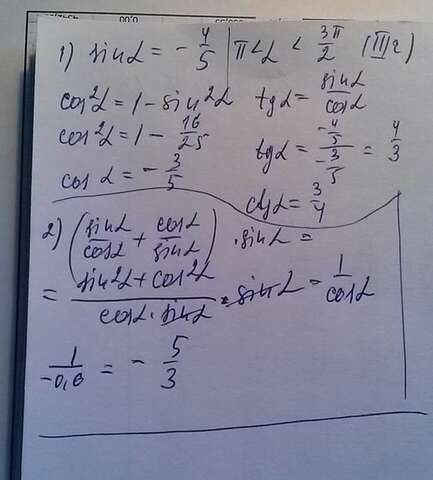 1) sinα = - 4/5 | π<α < 3π/2 (III г)
cos²α = 1 - sin²α tgα = sinα/cosα
cos²α = 1 - 16/25 tgα = (-4/5)/(-3/5) = 4/3
cos α = - 3/5 ctgα = 3/4
2) (sinα/cosα + cosα/sinα) · sinα =
= (sin²α + cos²α)/(cosα · sinα) · sinα = 1/cosα
1/-0,6 = - 5/3